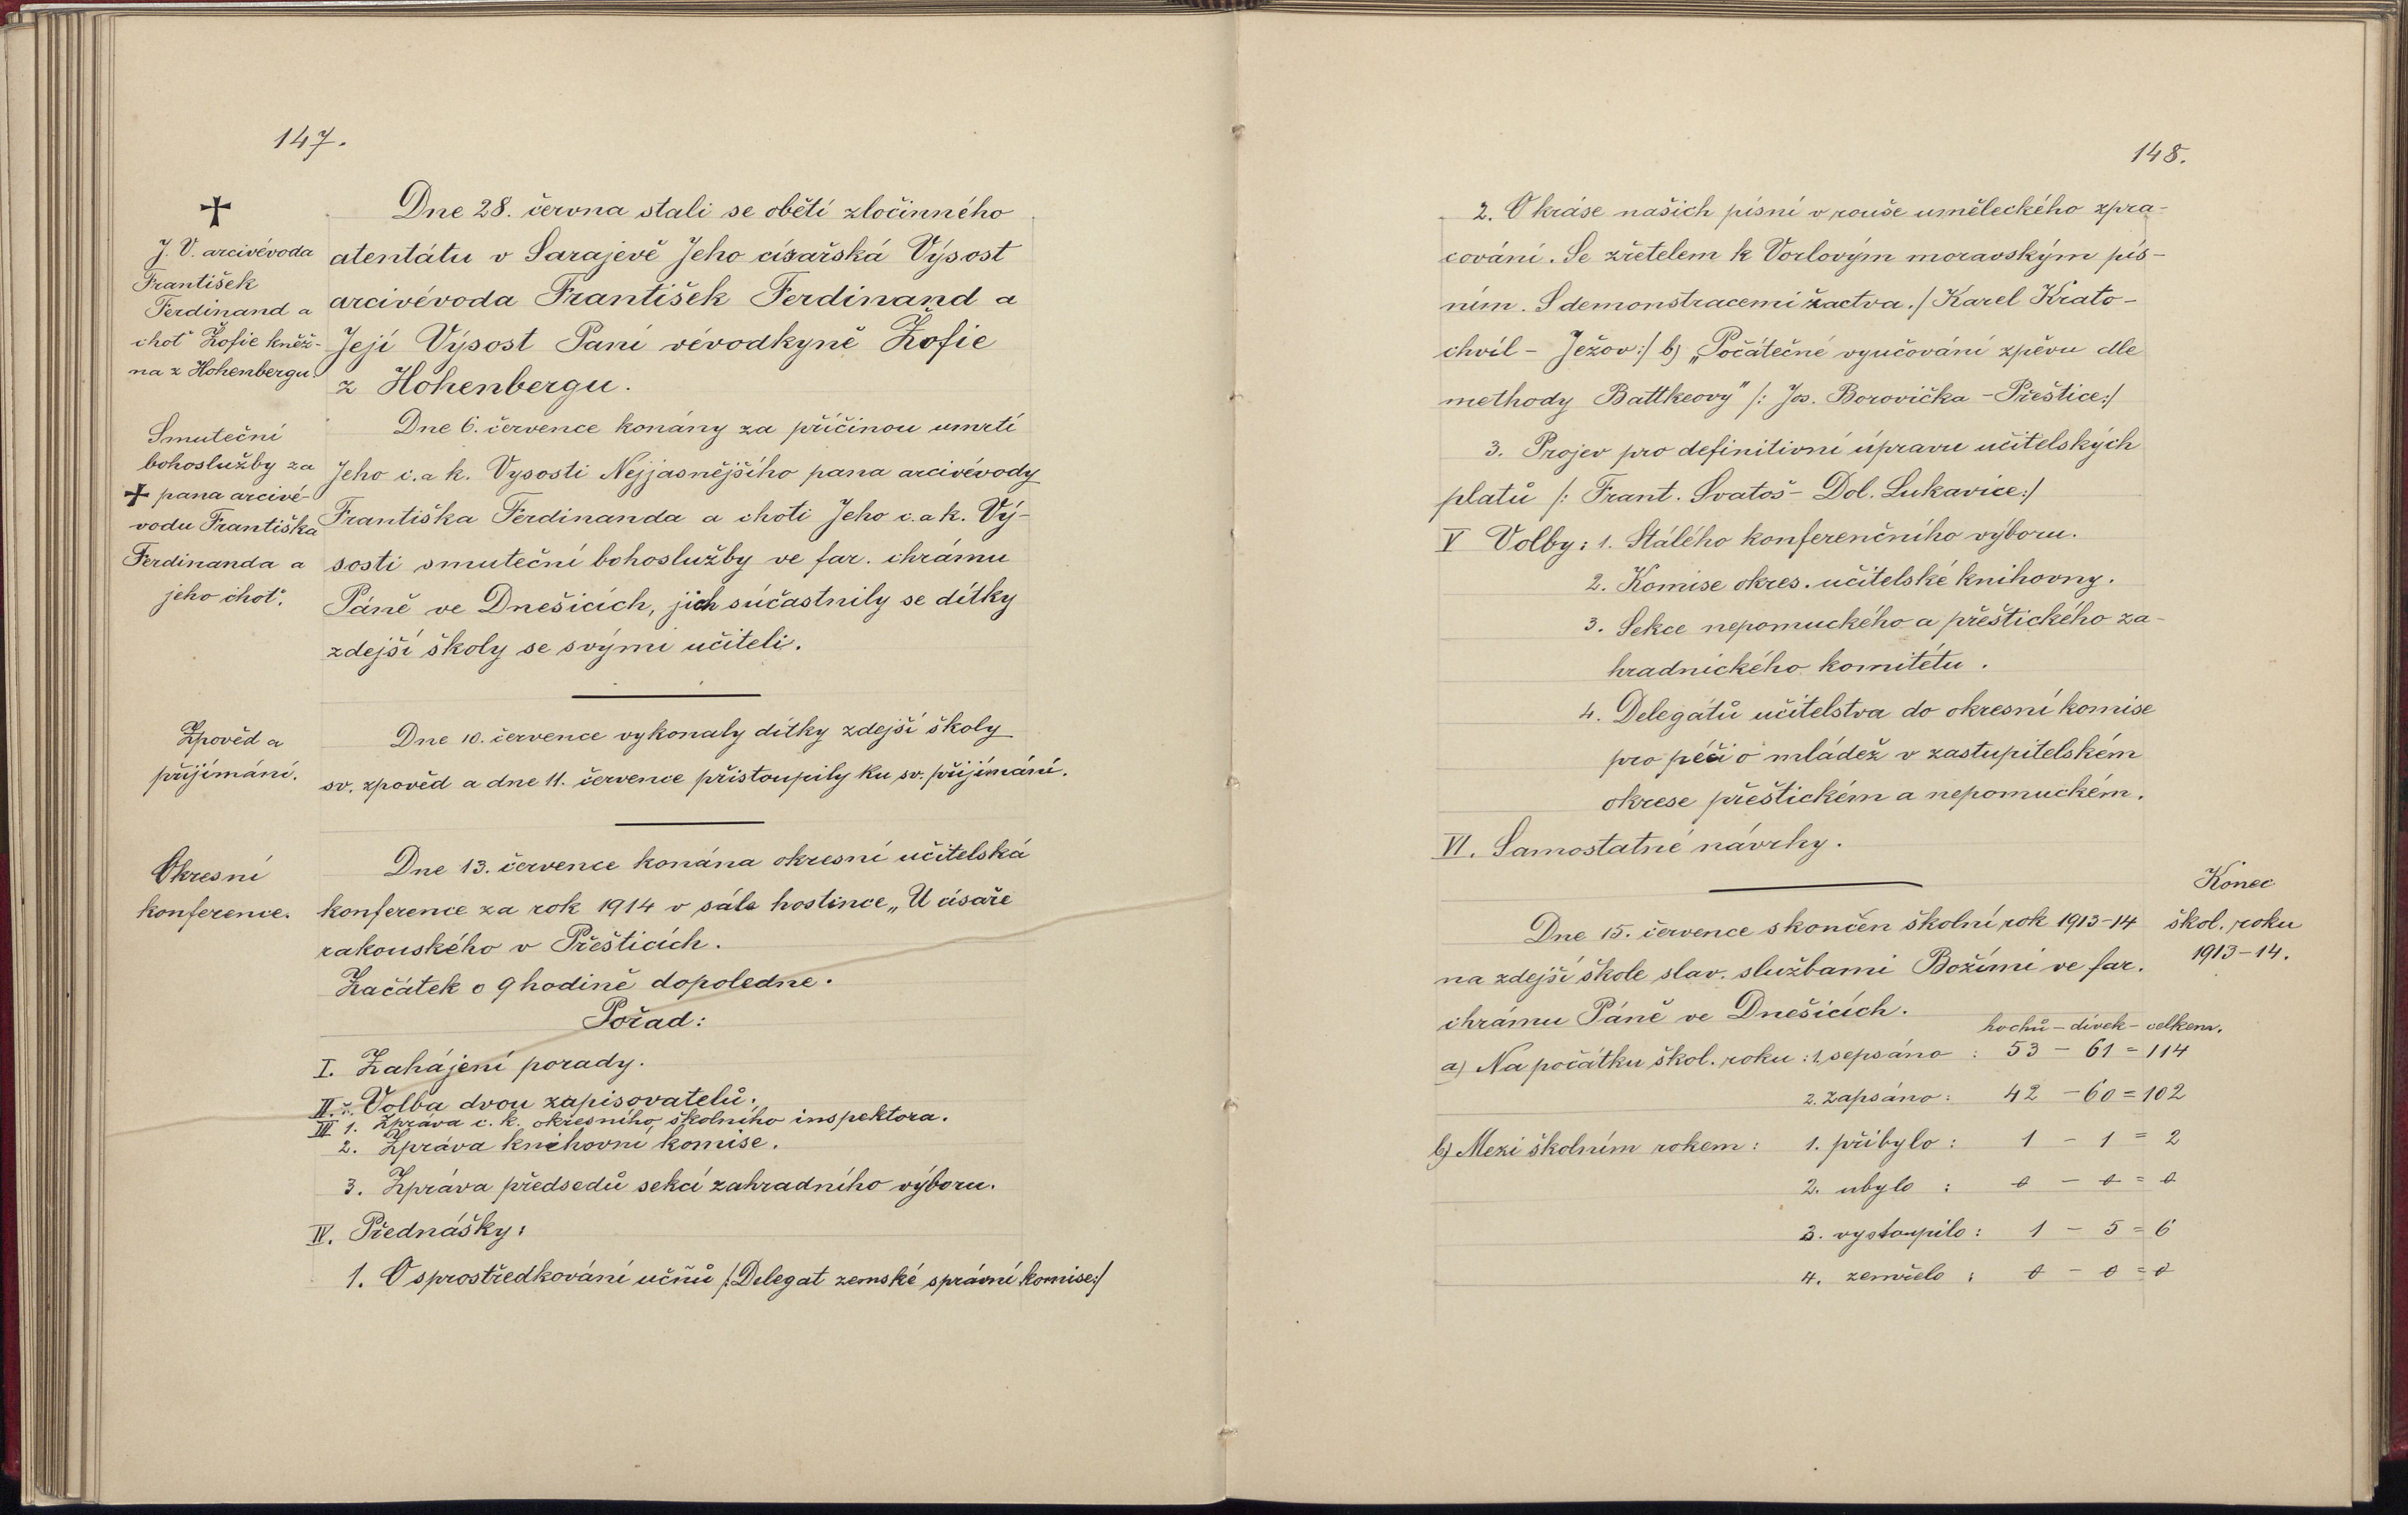 147.
✝
J. V. arcivévoda
František
Ferdinand a
choť Žofie kněž-
na z Hohenbergu.
Dne 28. června stali se obětí zločinného
atentátu v Sarajevě Jeho císařská Výsost
arcivévoda František Ferdinand a
Její Výsost Paní vévodkyně Žofie
z Hohenbergu.
Smuteční
bohoslužby za
✝ pana arcivé-
vodu Františka
Ferdinanda a
jeho choť.
Dne 6. července konány za příčinou úmrtí
Jeho c. a k. Vysosti Nejjasnějšího pana arcivévody
Františka Ferdinanda a choti Jeho c. a k. Vý-
sosti smuteční bohoslužby ve far. chrámu
Páně ve Dnešicích, jich súčastnily se dítky
zdejší školy se svými učiteli.
Zpověd a
přijímání.
Dne 10. července vykonaly dítky zdejší školy
sv. zpověd a dne 11. července přistoupily ku sv. přijímání.
Okresní
konference.
Dne 13. července konána okresní učitelská
konference za rok 1914 v sále hostince „U císaře
rakouského v Přešticích.
Začátek o 9 hodině dopoledne.
Pořad:
I. Zahájení porady.
II. Volba dvou zapisovatelů.
III 1. Zpráva c. k. okresního školního inspektora.
2. Zpráva knihovní komise.
3. Zpráva předsedů sekcí zahradního výboru.
IV. Přednášky:
1. O sprostředkování učňů /: Delegat zemské správní komise:/
148.
2. O kráse našich písní v rouše uměleckého zpra-
cování. Se zřetelem k Vorlovým moravským pís-
ním. S demonstracemi žactva. / Karel Krato-
chvíl - Ježov:/ b) „Počátečné vyučování zpěvu dle
methody Battkeovy" /: Jos. Borovička - Přeštice:/
3. Projev pro definitivní úpravu učitelských
platů /: Frant. Svatoš - Dol. Lukavice:/
V Volby: 1. Stálého konferenčního výboru.
2. Komise okres. učitelské knihovny.
3. Sekce nepomuckého a přeštického za-
hradnického komitétu.
4. Delegátů učitelstva do okresní komise
pro péči o mládež v zastupitelském
okrese přeštickém a nepomuckém.
VI. Samostatné návrhy.
Konec
škol. roku
1913-14.
Dne 15. července skončen školní rok 1913-14
na zdejší škole slav. službami Božími ve far.
chrámu Páně ve Dnešicích.
hochů - dívek - celkem.
a) Na počátku škol. roku: 1. sepsáno: 53 - 61 = 114
2. zapsáno: 42 - 60 = 102
b) Mezi školním rokem: 1. přibylo: 1 - 1 = 2
2. ubylo: 0 - 0 = 0
3. vystoupilo: 1 - 5 = 6
4. zemřelo: 0 - 0 = 0